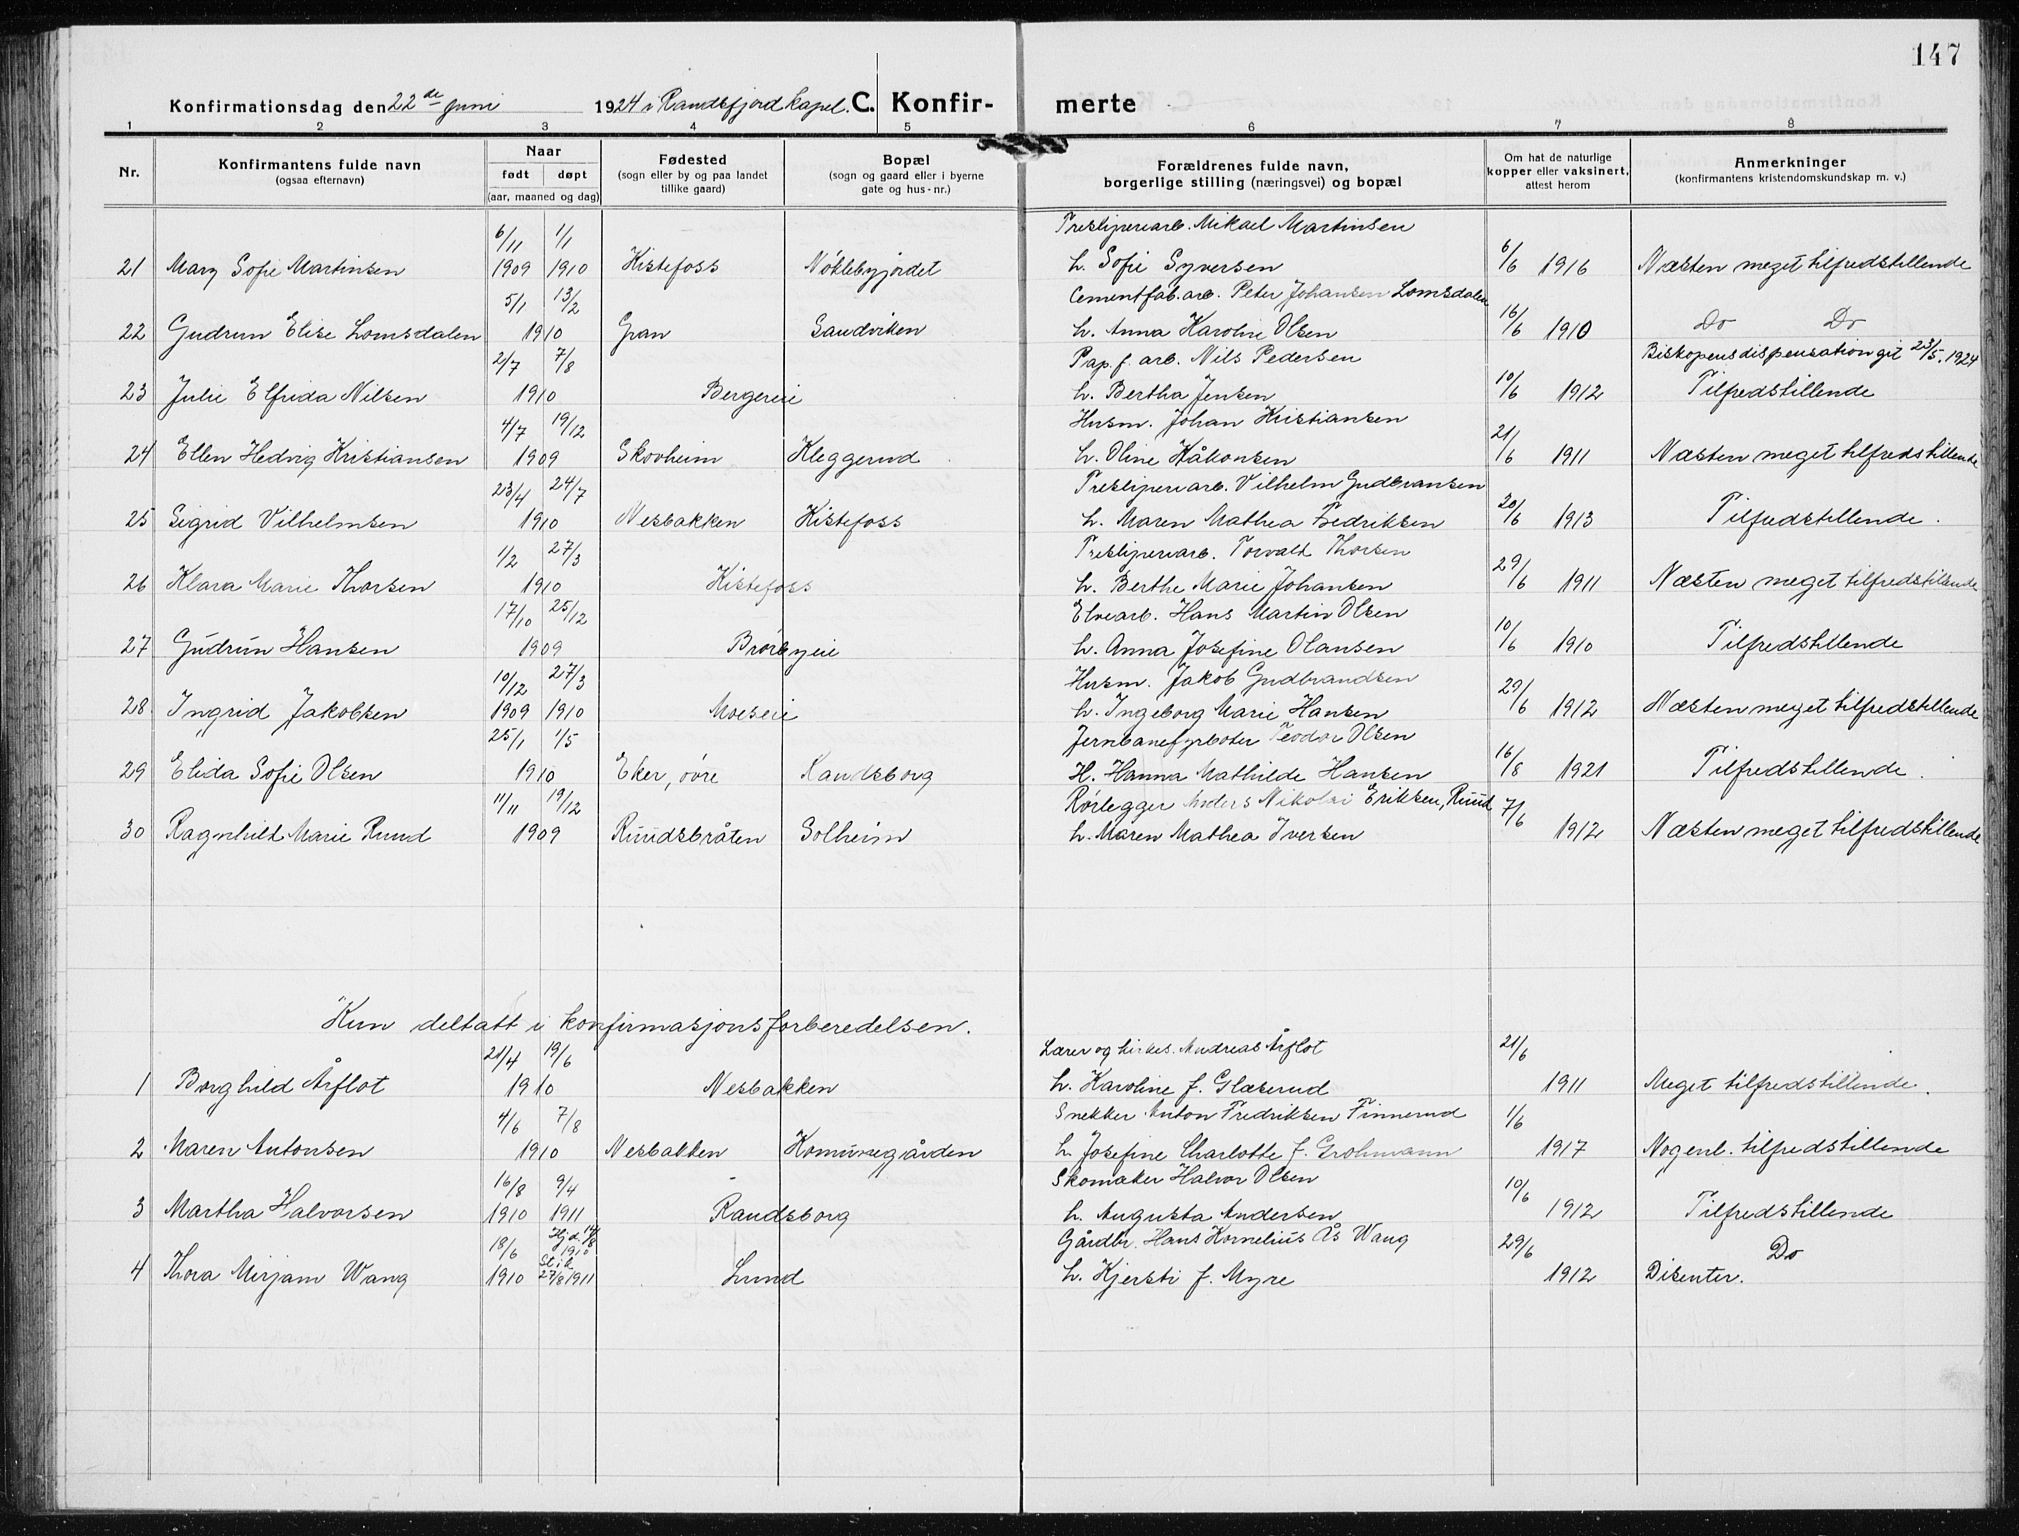 147
Konfirmationsdag den 22de juni 1924 i Randsfjord kapel. C. Konfir-merte
1 2 3 4 5 6 7 8
Nr. Konfirmantens fulde navn (ogsaa efternavn) Naar født døpt (aar, maaned og dag) Fødested (sogn eller by og paa landet tillike gaard) Bopæl (sogn og gaard eller i byerne gate og hus-nr.) Forældrenes fulde navn, borgerlige stilling (næringsvei) og bopæl Om hat de naturlige kopper eller vaksinert, attest herom Anmerkninger (konfirmantens kristendomskundskap m. v.)
6/11 1/1 Træsliperiarb. Mikael Martinsen
21 Mary Sofie Martinsen 1909 1910 Kistefoss Nøklebyjordet h. Sofie Syversen 6/6 1916 Næsten meget tilfredstillende
5/1 13/2 Cementfab. arb. Peter Johansen Lomsdalen
22 Gudrun Elise Lomsdalen 1910 Gran Sandviken h. Anna Karoline Olsen 16/6 1910 Do Do
2/7 7/8 Pap. f. arb. Nils Pedersen Biskopens dispensation git 23/5. 1924
23 Julie Elfrida Nilsen 1910 Bergereie h. Bertha Jensen 10/6 1912 Tilfredstillende
4/7 19/12 Husm. Johan Kristiansen
24 Ellen Hedvig Kristiansen 1909 Skovheim Kleggerud h. Oline Håkonsen 21/6 1911 Næsten meget tilfredstillende
23/4 24/7 Træsliperiarb. Vilhelm Gudbransen
25 Sigrid Vilhelmsen 1910 Nesbakken Kistefoss h. Maren Mathea Fredriksen 20/6 1913 Tilfredstillende.
1/2 27/3 Træsliperiarb. Torvald Thorsen
26 Klara Marie Thorsen 1910 Kistefoss h. Berthe Marie Johansen 29/6 1911 Næsten meget tilfredstillende
17/10 25/12 Elvearb. Hans Martin Olsen
27 Gudrun Hansen 1909 Brørbyeie h. Anna Josefine Olansen 10/6 1910 Tilfredstillende
10/12 27/3 Husm. Jakob Gudbrandsen
28. Ingrid Jakobsen 1909 1910 Moeseie h. Ingeborg Marie Hansen 29/6 1912 Næsten meget tilfredstillende
25/1 1/5 Jernbanefyrbøter Teodor Olsen
29 Elida Sofie Olsen 1910 Eker, øvre Randsborg H. Hanna Mathilde Hansen 16/8 1921 Tilfredstillende.
11/11 19/12 Rørlegger Anders Nikolai Eriksen, Ruud
30 Ragnhild Marie Ruud 1909 Ruudsbråten Solheim h. Maren Mathea Iversen 7/6 1912 Næsten meget tilfredstillende
Kun deltatt i konfirmasjonsforberedelsen.
21/4 19/6 Lærer og kirkes. Andreas Årflot 21/6
1 Borghild Årflot 1910 Nesbakken h. Karoline f. Glæserud 1911 Meget tilfredstillende.
4/6 7/8 Snekker Anton Fredriksen Finnerud 1/6
2 Maren Antonsen 1910 Nesbakken Komunegården h. Josefine Charlotte f. Grohmann 1917 Nogenl. tilfredstillende
16/8 9/4 Skomaker Halvor Olsen 10/6
3 Martha Halvorsen 1910 1911 Randsborg h. Augusta Andersen 1912 Tilfredstillende
18/6 Hjd. 1910 Gårdbr. Hans Kornelius Ås Wang 29/6 Do
4 Thora Mirjam Wang 1910 St. i k. 27/8 1911 Lund h. Kjersti f. Myre 1912 Disenter.